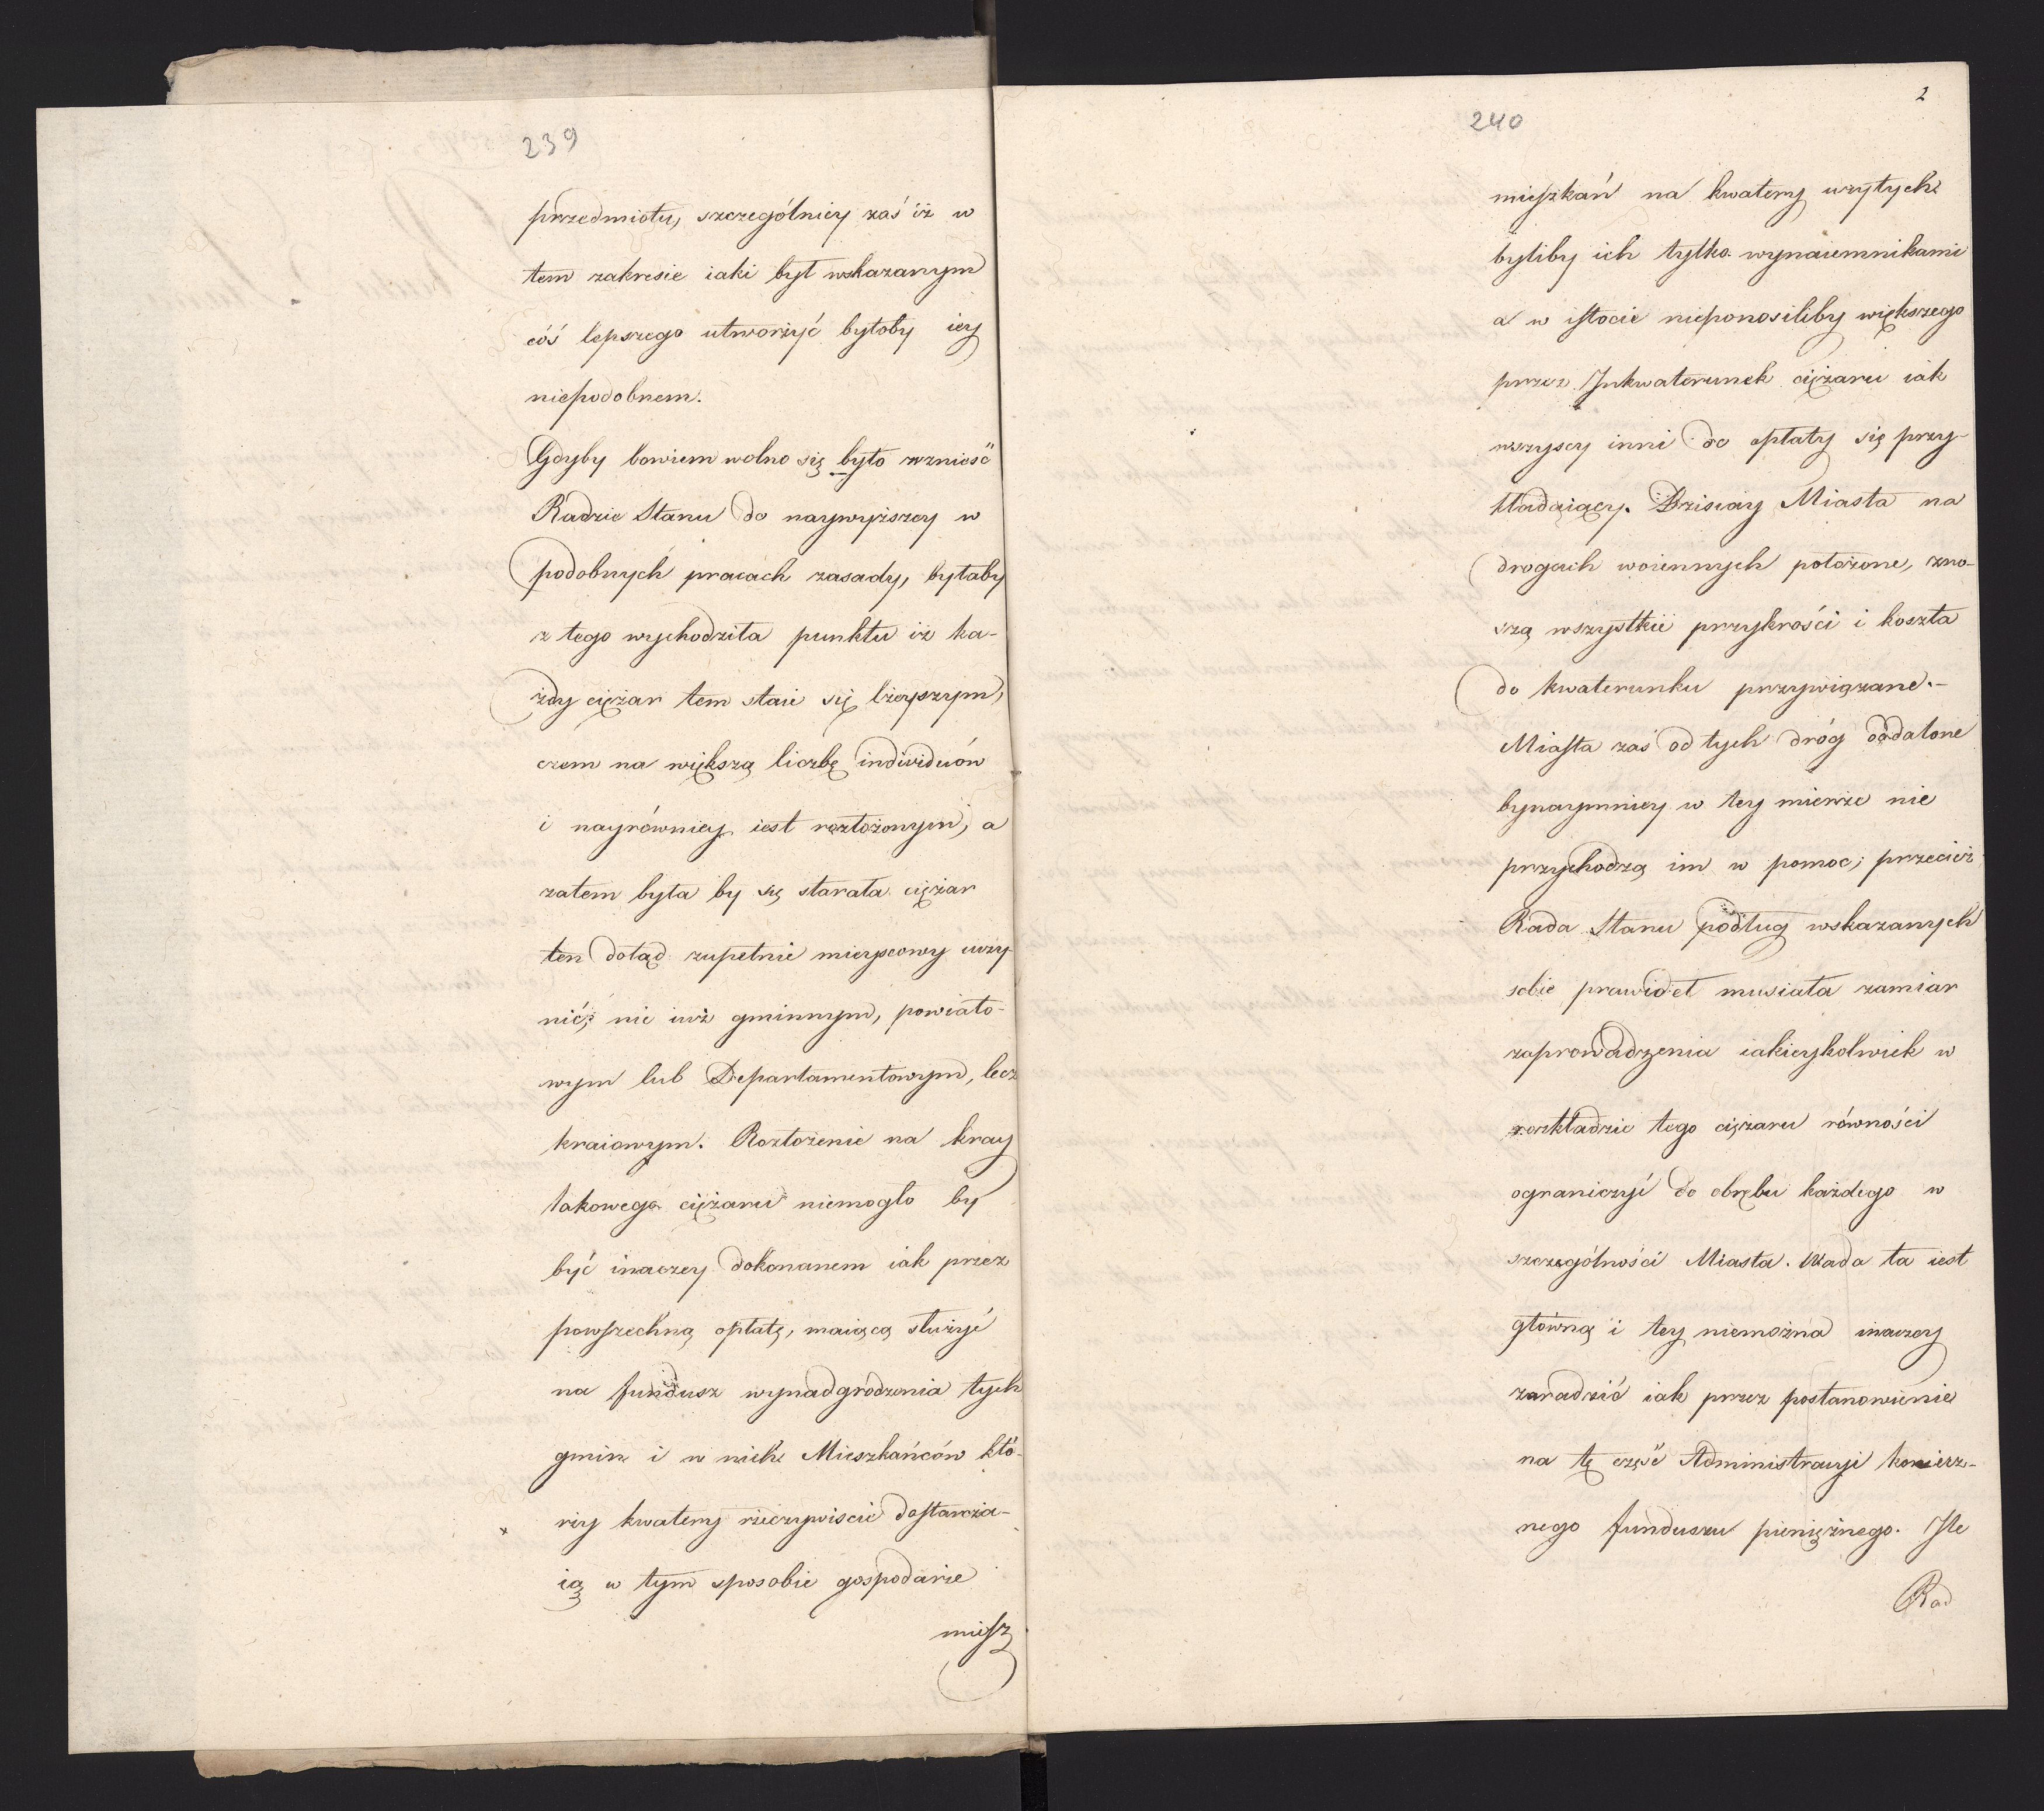 239
przedmiotu, szczególniey zaś iż w
tem zakresie iaki był wskazanym
cóś lepszego utworzyć byłoby iey
niepodobnem.
Gdyby bowiem wolno się było wznieść
Radzie Stanu do naywyższey w
podobnych pracach zasady, byłaby
z tego wychodziła punktu iż ka-
żdy ciężar tem staie się lżeyszym,
czem na większą liczbę individuów
i nayrówniey iest rozłożonym, a
zatem była by się starała ciężar
ten dotąd zupełnie mieyscowy uczy-
nić, nie iuż gminnym, powiato-
wym lub Departamentowym, lecz
kraiowym. Rozłożenie na kray
takowego ciężaru niemogło by
być inaczey dokonanem iak przez
powszechną opłatę, maiącą służyć
na fundusz wynadgrodzenia tych
gmin i w nich Mieszkańców któ-
rzy kwatery rzeczywiście dostarcza-
ią w tym sposobie gospodarze
miesz
2
240
mieszkań na kwatery użytych
byliby ich tylko wynaiemnikami
a w istocie nieponosiliby większego
przez Inkwaterunek ciężaru iak
wszyscy inni do opłaty się przy-
kładaiący. Dzisiay Miasta na
drogach woiennych położone, zno-
szą wszystkie przykrości i koszta
do kwaterunku przywiązane.-
Miasta zaś od tych dróg oddalone
bynaymniey w tey mierze nie
przychodzą im w pomoc; przecież
Rada Stanu podług wskazanych
sobie prawideł musiała zamiar
zaprowadzenia iakieykolwiek w
rozkładzie tego ciężaru równości
ograniczyć do obrębu każdego w
szczególności Miasta. Wada ta iest
główną i tey niemożna inaczey
zaradzić iak przez postanowienie
na tę część Administracyi koniecz-
nego funduszu pieniężnego. Ile
Rad